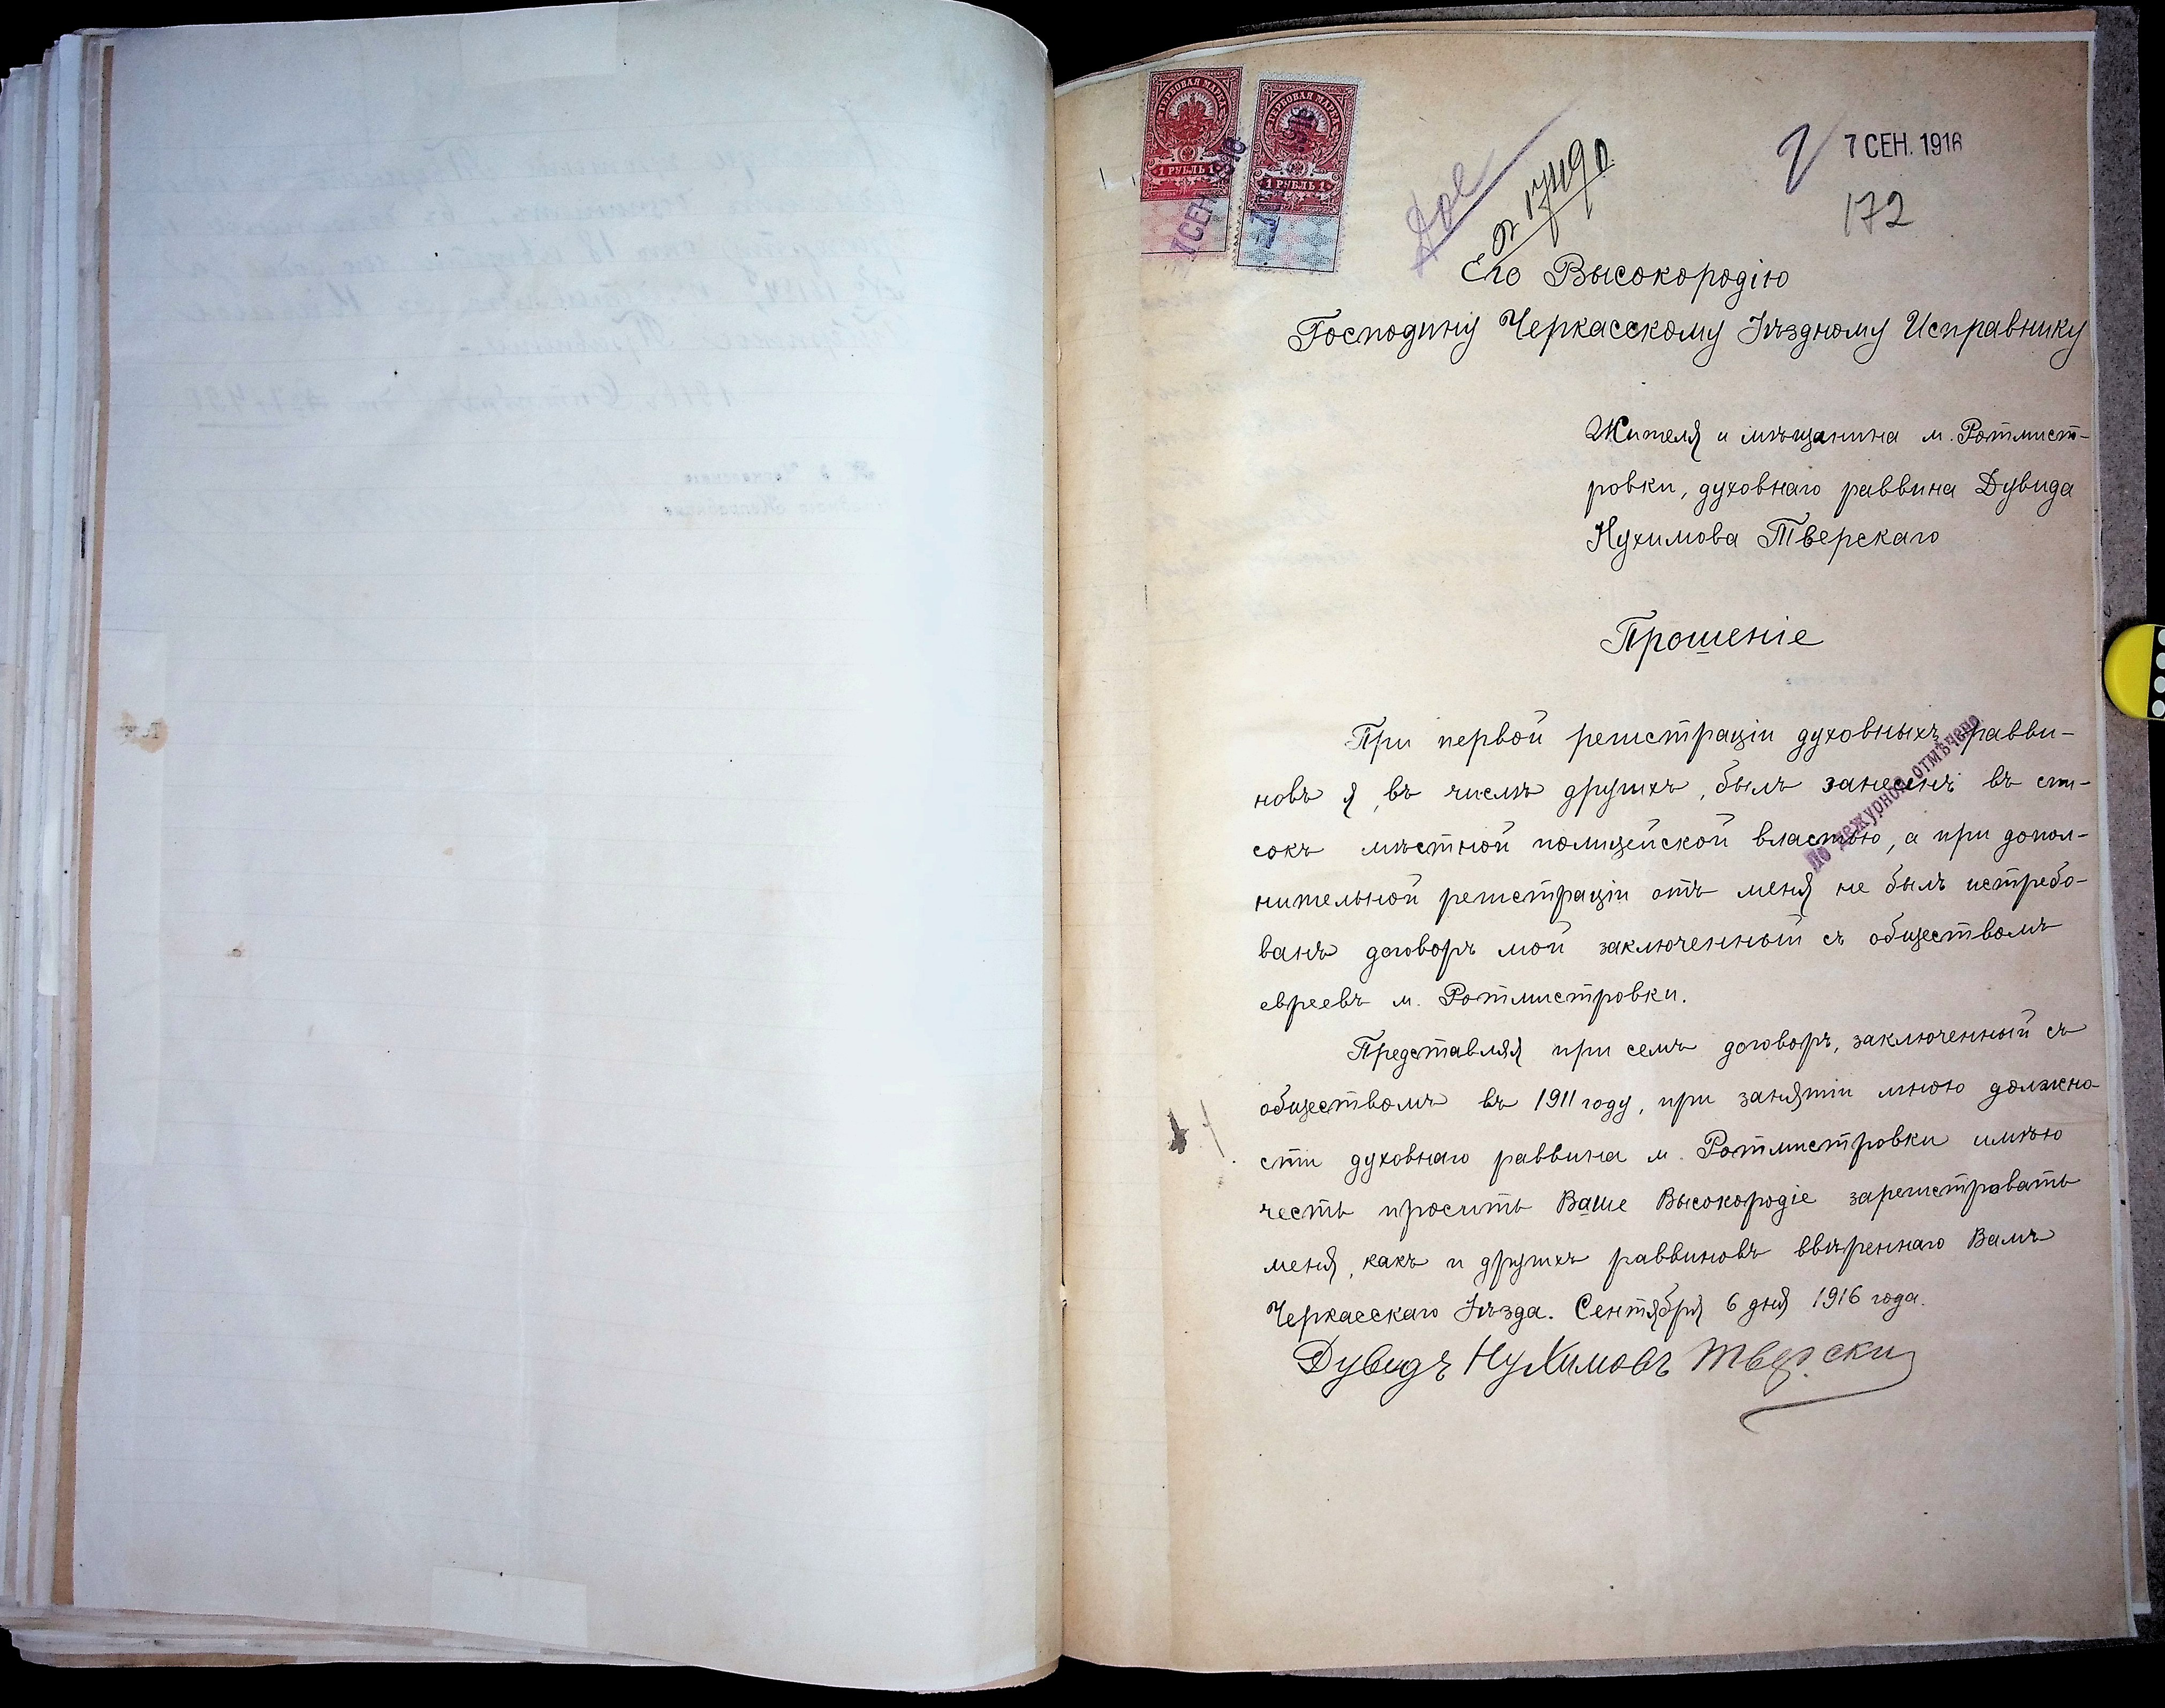 ГЕРБОВАЯ МАРКА
1 РУБЛЬ 1
7 СЕН 1916
ГЕРБОВАЯ МАРКА
1 РУБЛЬ 1
7 СЕН. 1916
172
Его Высокородію
Господину Черкасскому Уѣздному Исправнику
Жителя и мѣщанина м. Ротмист-
ровки, духовнаго раввина Дувида
Нухимова Тверскаго
Прошеніе
При первой регистраціи духовныхъ равви-
новъ я, въ числѣ другихъ, былъ занесенъ въ спи-
сокъ мѣстной полицейской властью, а при допол-
нительной регистраціи отъ меня не былъ истребо-
ванъ договоръ мой заключенный съ обществомъ
евреевъ м. Ротмистровки.
По дежурной отмѣчено
Представляя при семъ договоръ, заключенный съ
обществомъ въ 1911 году, при занятіи мною должно-
сти духовнаго раввина м. Ротмистровки имѣю
честь просить Ваше Высокородіе зарегистровать
меня, какъ и другихъ раввиновъ ввѣреннаго Вамъ
Черкасскаго Уѣзда. Сентября 6 дня 1916 года.
Дувидъ Нухимовъ Тверски